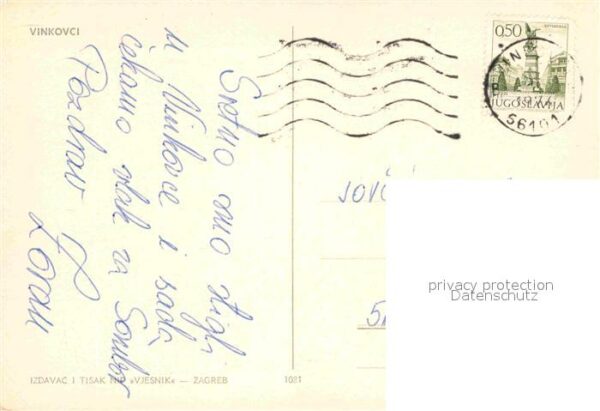 VINKOVCI
Sretno smo stigli
u Vinkovce i sada
čekamo vlak za Sombor
Pozdrav
Zoran
0,50
JUGOSLAVIJA
56101
JOV
privacy protection
Datenschutz
IZDAVAČ I TISAK NIP »VJESNIK« — ZAGREB 1081